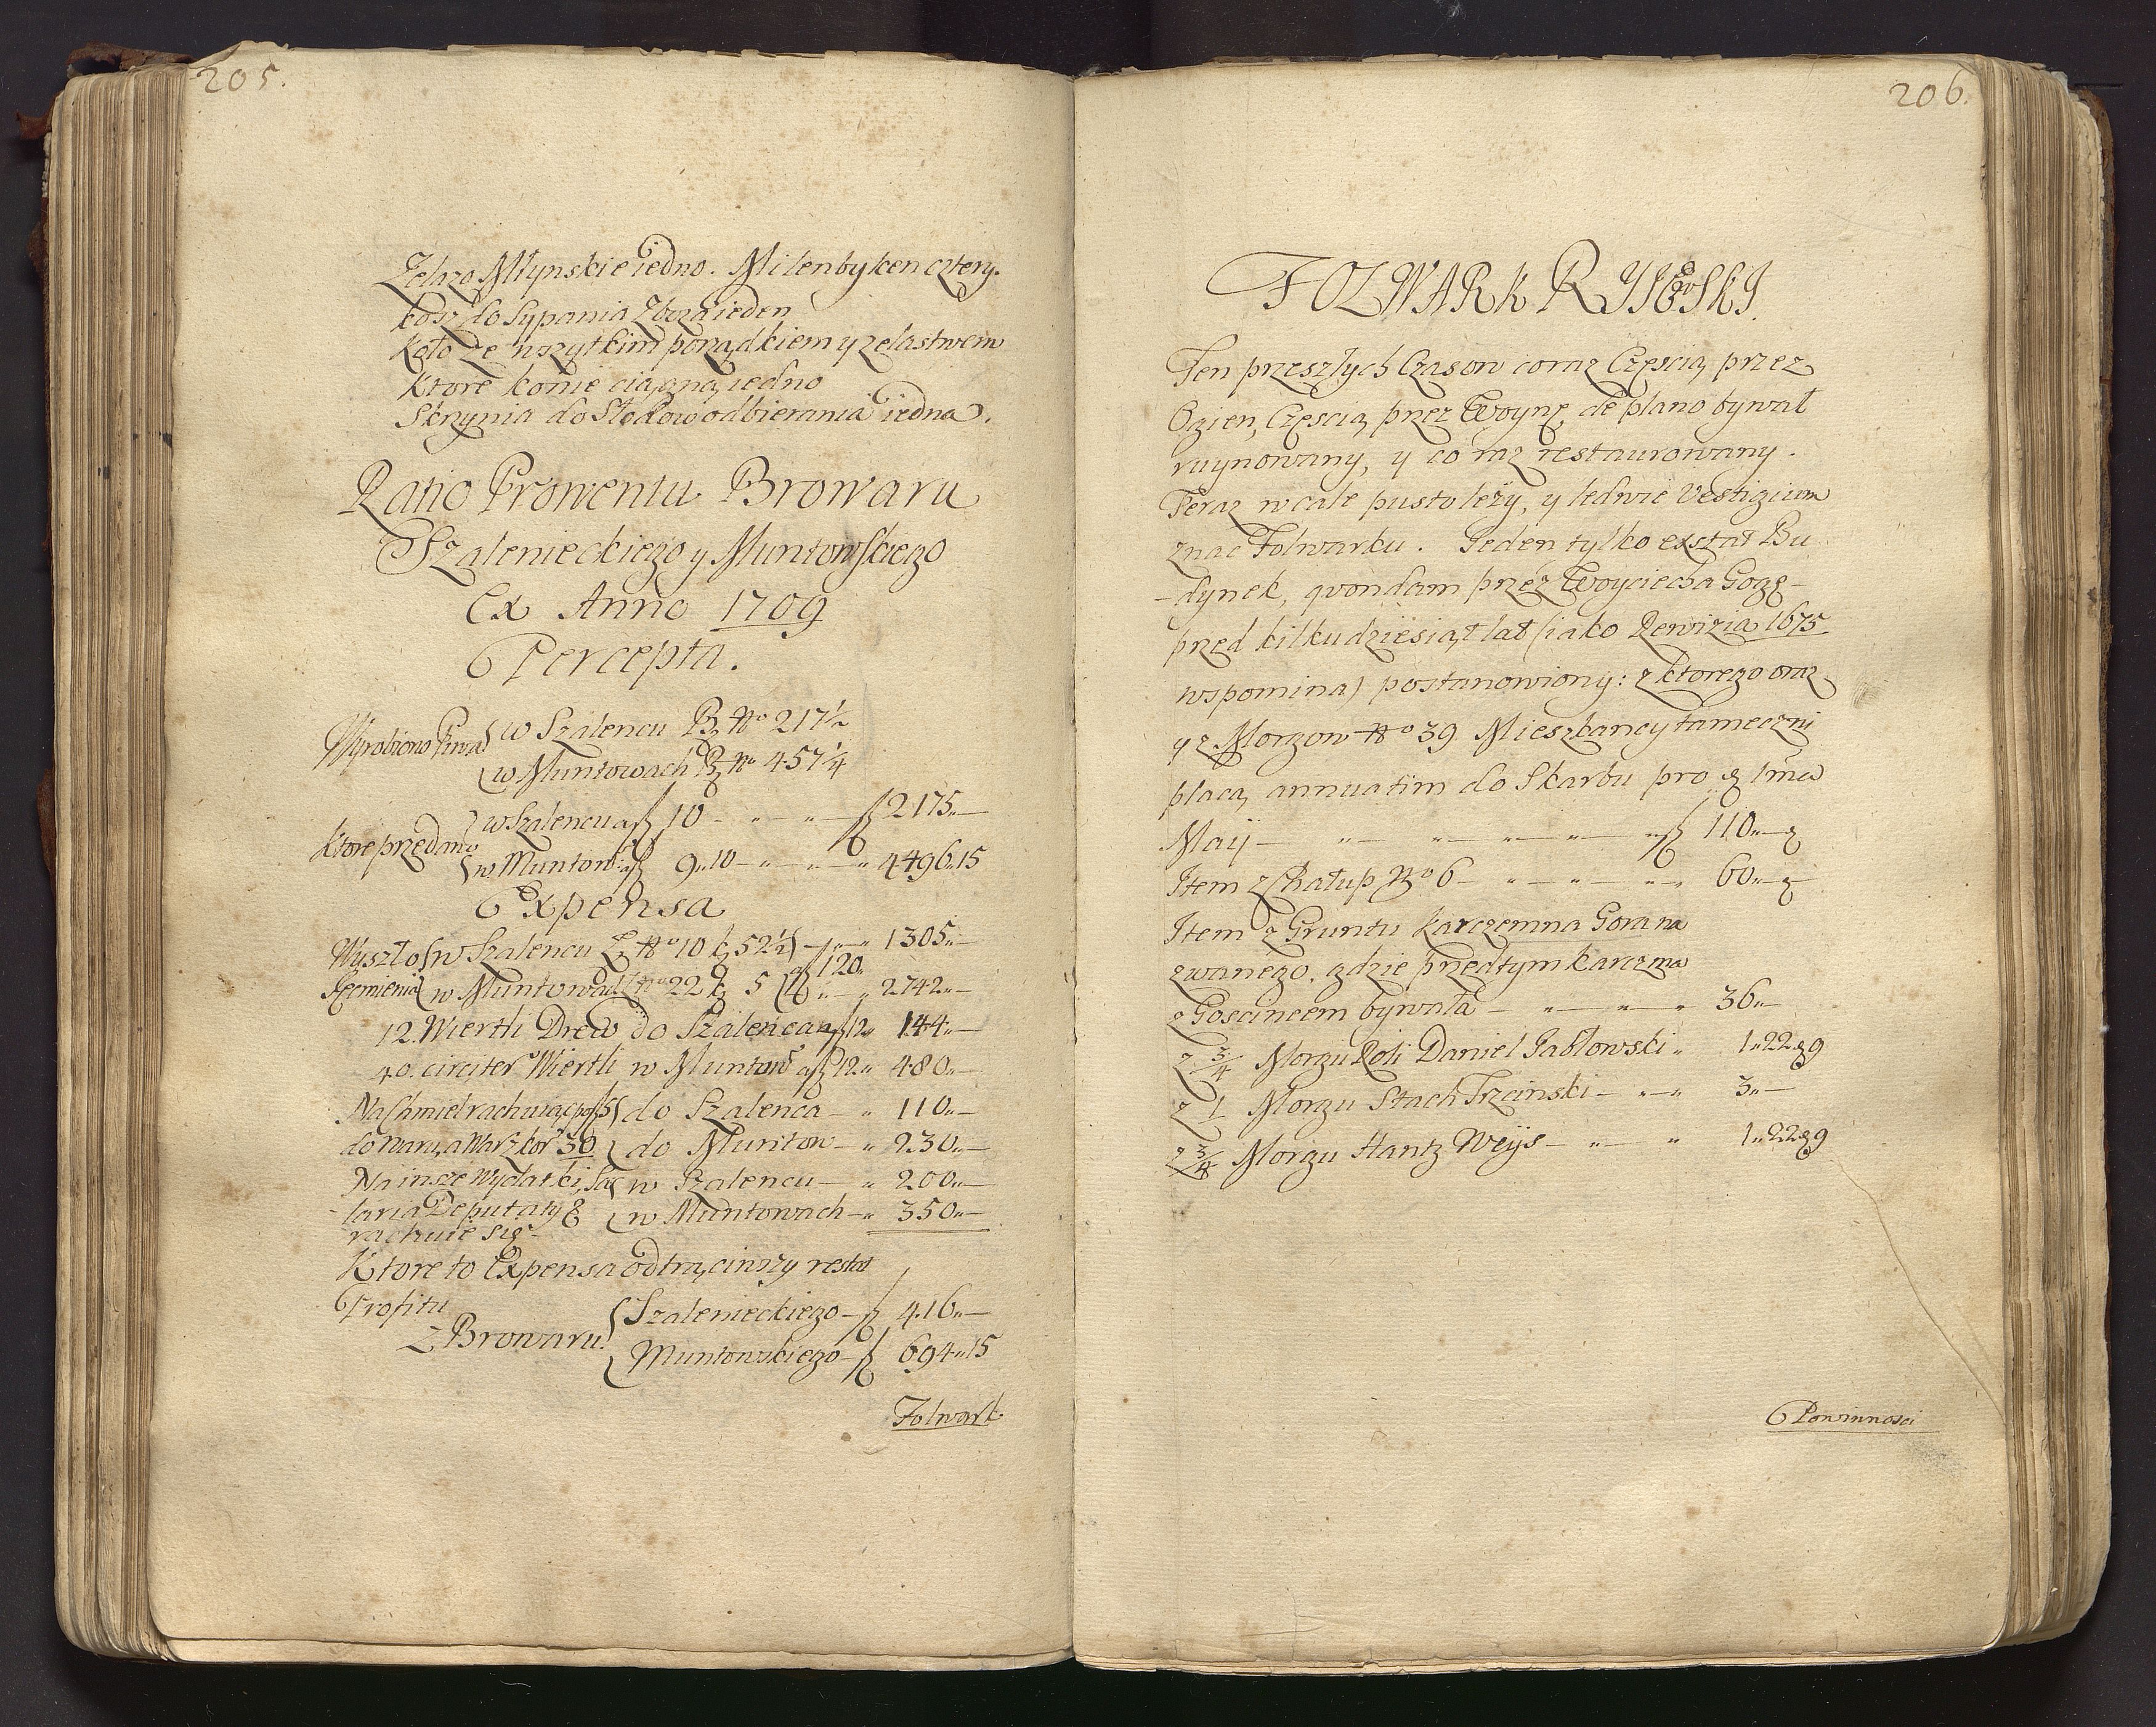 205.
Zelazo Młynskie iedno. Milenbyken cztery.
kosz do Sypania Zboza ieden
Koło ze wszytkim porządkiem y zelastwem
ktore konie ciągną iedno
Skrzynia do Słodow odbierania iedna.
Ratio Prowentu Browaru
Szalenieckiego y Muntowskiego
Ex Anno 1709
Percepta.
Wyrobiono Piwa w Szalencu B. No 217½
w Muntowach B. No 457¼
Ktore przedano w Szalencu a f 10 - " - " - f 2175"-
w Muntow: a f 9"10 - " - " - " 4496"15
Expensa
Wyszło w Szalencu Ł No 10 k 52½ - " - " 1305"-
Jęcmienia w Muntowach Ł No 22 k 5 a f 120 " - " 2742"-
12. Wiertli Drew do Szalenca a f 12" 144"-
40. circiter Wiertli w Muntow a f 12" 480"-
Na Chmiel rachuiąc po f 5 do Szalenca - " 110"-
do Waru, a Warz kor 30 do Muntow - " 230"-
Na insze Wydatki, Sa w Szalencu - " 200"-
laria Deputaty & w Muntowach - " 350"-
rachuie się
Ktore to Expensa odtrąciwszy restat
Profitu
z Browaru Szalenieckiego - f 416"-
Muntowskiego - f 694"15
Folwark
206.
FOLWARK RYSOWSKI.
Ten przeszłych Czasow coraz Częscią przez
Ogien, Częscią przez Woynę, de plano bywał
ruynowany, y co raz restaurowany.
Teraz wcale pusto leży, y ledwie Vestigium
znac Folwarku. Jeden tylko exstat Bu
-dynek, qvondam przez Woyciecha Gogę-
przed kilkudziesiąt lat (iako Rewizia 1675
wspomina) postanowiony: z ktorego oraz
y z Morgow No 39 Mieszkancy tameczni
płacą annuatim do Skarbu pro 1ma
Maij - " - " - " - " - " f 110"-
Item z Chałup No 6 - " - " - " - " 60"-
Item z Gruntu Karczemna Gora na
zwanego, gdzie przedtym karczma
z Goscincem bywała - " - " - " 36"-
z ¾ Morgu Roli Daniel Jabłowski " 1"22 9
z 1 Morgu Stach Trzcinski - " - " 3"-
z ¾ Morgu Hantz Weijs - " - " 1"22 9
Powinnosci